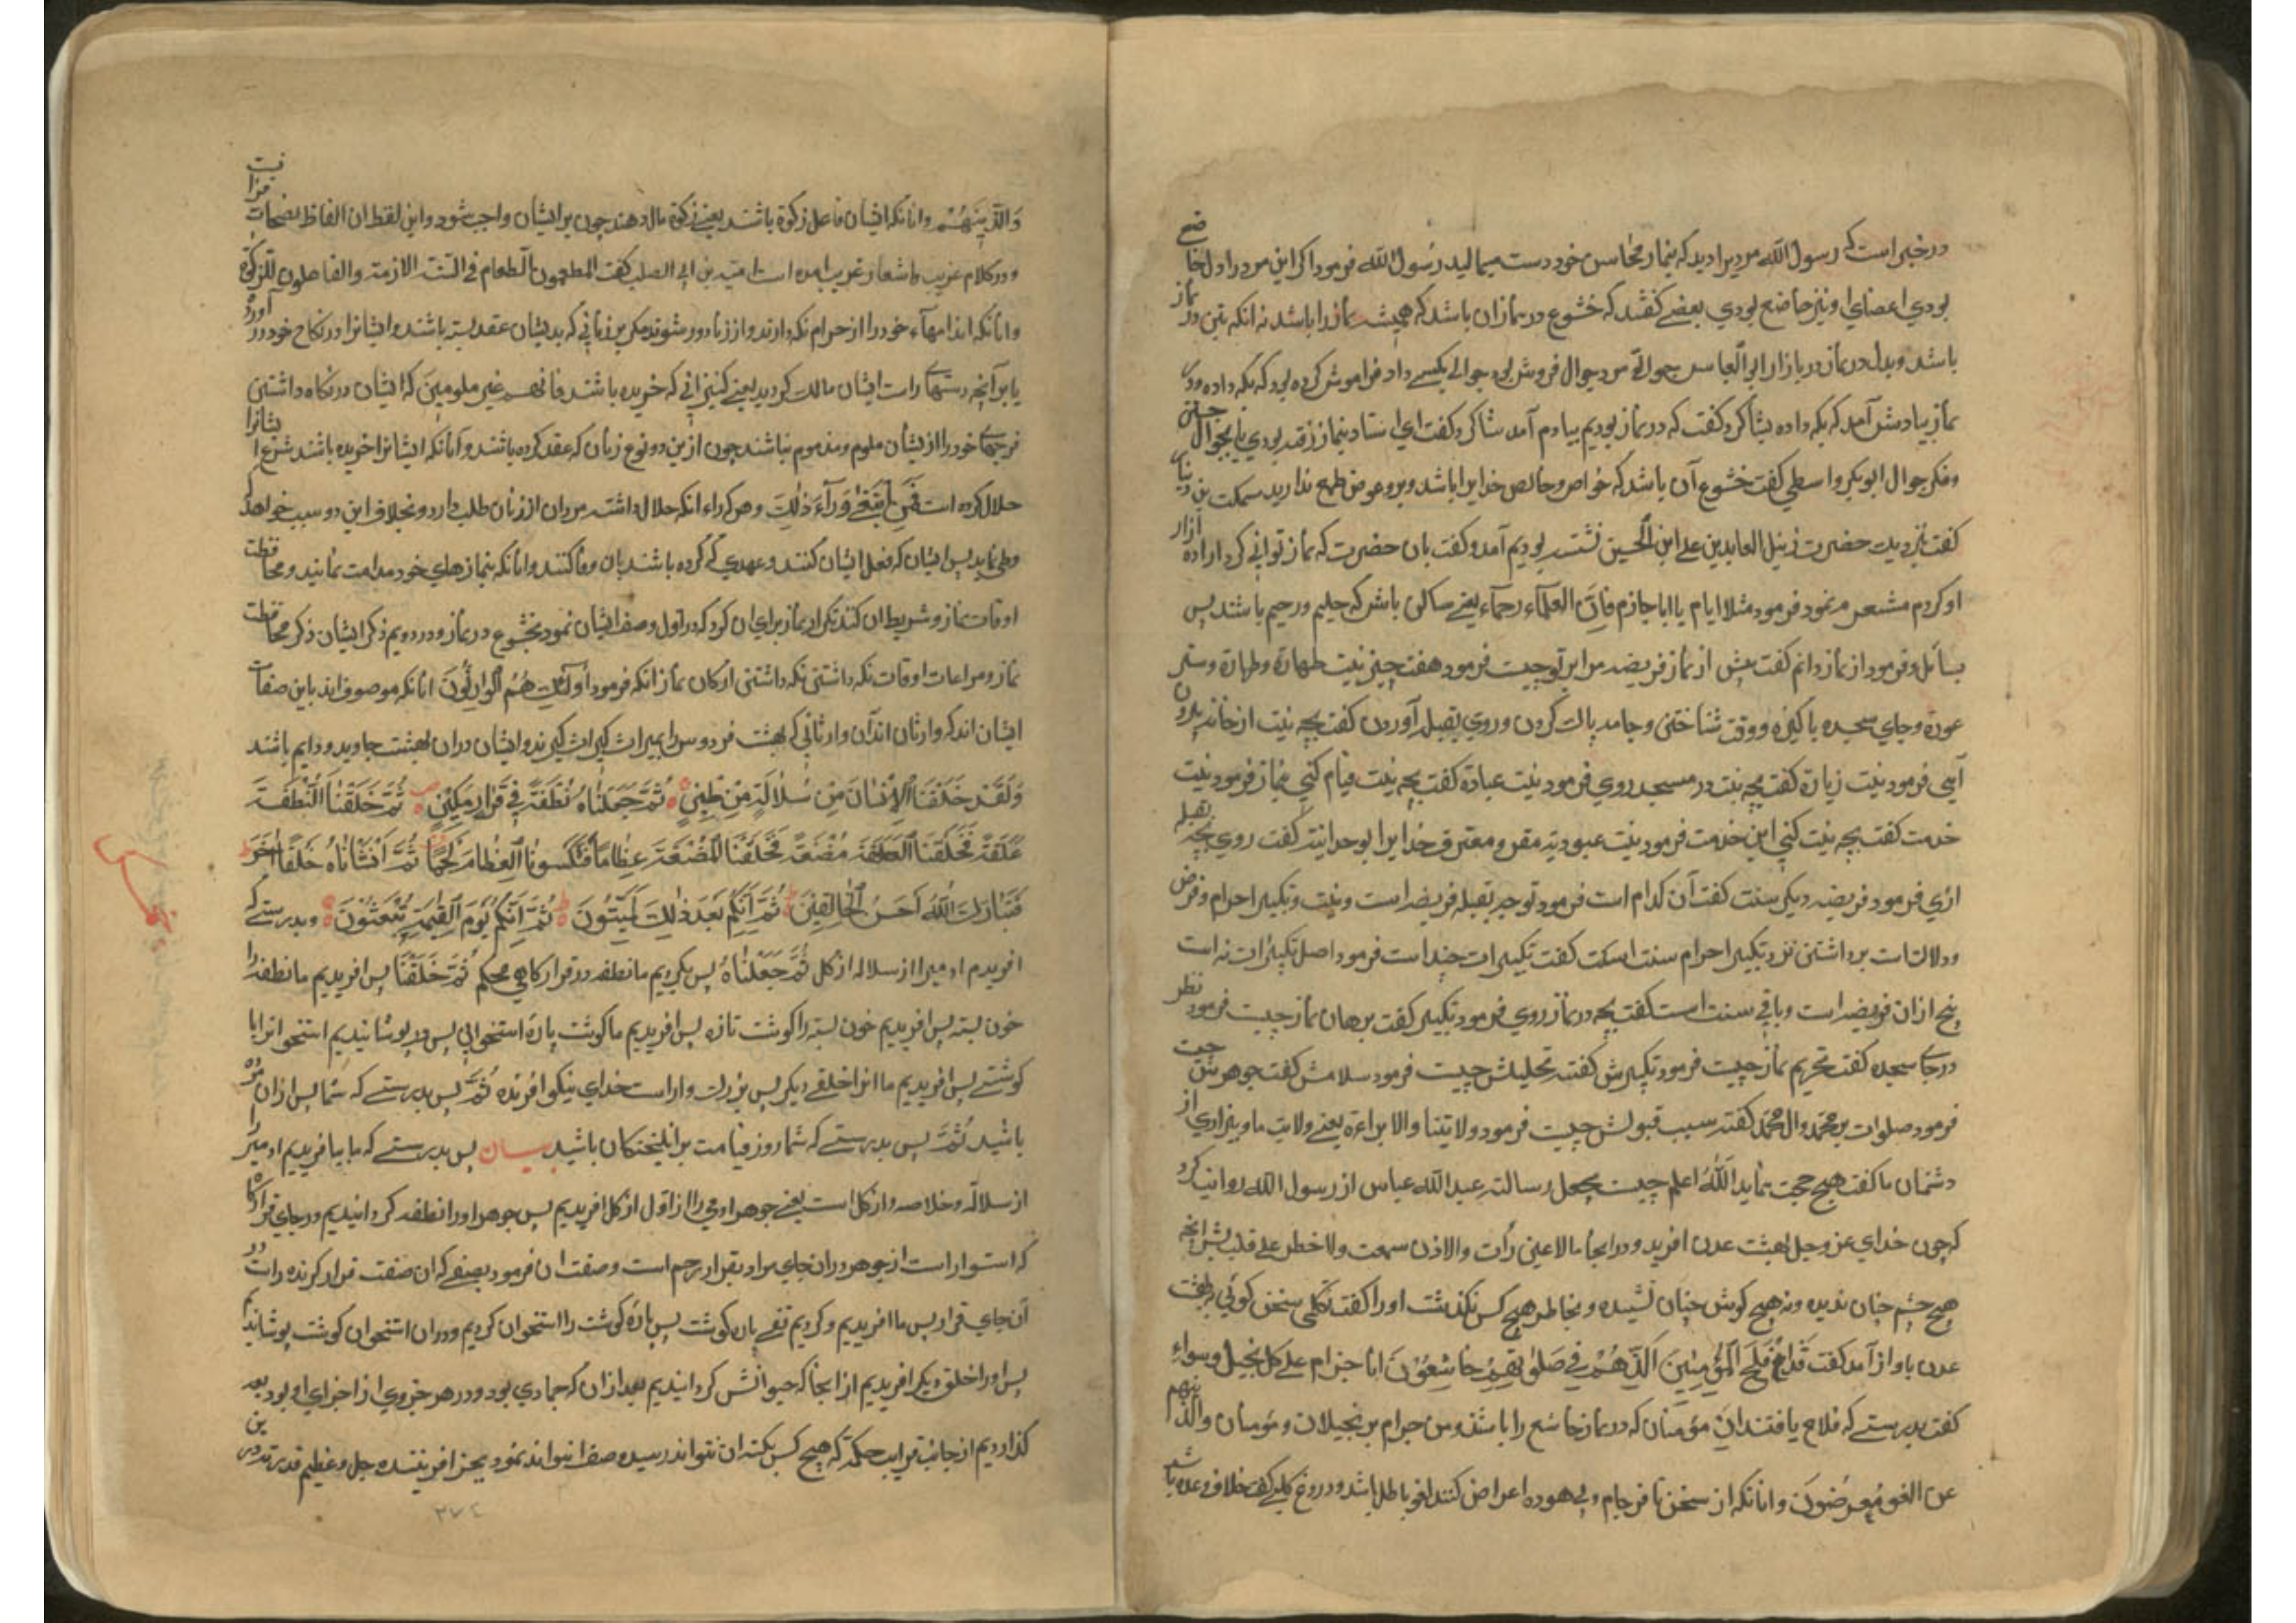 در خبر است که رسول الله مردیرا دید که بنماز محاسن خود دست میمالید رسول الله فرمود اکر این مرد را دل خاضع
بودی اعضای او نیز خاضع بودی بعضی کفتند که خشوع در نماز ان باشد که همیشه نماز را باشد نه انکه بتن در نماز
باشد و بدل در بازار ابو العباس جوالقی مرد جوال فروش بود جوالی بکسی داد فراموش کرده بود که بکه داده در
نماز بیادش آمد که بکه داده شاکرد کفت که در نماز بودیم بیادم آمد شاکرد کفت ای استاد بنماز رفته بودی یا بجستن جوال
و فکر جوال ابو بکر واسطی کفت خشوع آن باشد که خواص و خالص خدایرا باشد و برو عوض طمع ندارید
کفت نزدیک حضرت زین العابدین علی ابن الحسین نشسته بودیم آمد و کفت بان حضرت که نماز توانی کرد اراده ازار
او کردم مرنمود فرمود مثلا ایام یا ابا حازم فان العلماء رحماء یعنی ساکن باش که حلیم و رحیم باشند پس
بسائل و فرمود از نماز دانم کفت پیش از نماز فریضه مرا بر تو چیست فرمود هفت چیز نیت طهارة و طهارة و ستر
عورة و جای سجده پاکیزه و وقت شناختن و جامه پاک کردن و روی بقبله آوردن کفت بچه نیت از خانه بیرون
آیی فرمود نیت زیارة کفت بچه نیت در مسجد روی فرمود نیت عبادة کفت بچه نیت قیام کنی بنماز فرمود نیت
خدمت کفت بچه نیت کنی این خدمت فرمود نیت عبودیة مقر و معترف خدایرا بوحدانیت کفت روی بچه بقبله
اری فرمود فریضه دیکر سنت کفت آن کدام است فرمود توجه بقبله فریضه است و نیت و تکبیر احرام و فرض
و دلالت است برداشتن نزد تکبیر احرام سنت است کفت تکبیرات چند است فرمود اصل تکبیرات نه است
پنج از ان فریضه است و باقی سنت است کفت بچه در نماز روی فرمود تکبیر کفت برهان نماز چیست فرمود نظر
در جای سجده کفت تحریم نماز چیست فرمود تکبیرش کفت تحلیلش چیست فرمود سلامش کفت جوهرش چیست
فرمود صلوات بر محمد و ال محمد کفت سبب قبولش چیست فرمود ولایتنا والابراءة یعنی ولایت ما و بیزاری از
دشمنان ما کفت هیچ حجت نماند الله اعلم حیث یجعل رسالته عبد الله عباس از رسول الله روایت کرد
که چون خدای عز وجل بهشت عدن افرید و در انجا ما لا عین رأت والا اذن سمعت ولا خطر علی قلب بشر انچه
هیچ چشم چنان ندیده و نه هیچ کوش چنان نشنیده و بخاطر هیچ کس نکذشت او را کفت تکلمی سخن کوئی بهشت
عدن باواز آمد کفت قد افلح المؤمنین الذین هم فی صلوتهم خاشعون انا حرام علی کل بخیل و سواء
کفت بدرستی که فلاح یافتند ان مؤمنان که در نماز خاشع را باشند و من حرام بر بخیلان و والذینهم
عن الغو معرضون و انانکه از سخن نافرجام و بی هوده اعراض کنند لغو باطل باشد و دروغ خلاف وعده باشد
وَالذینَهُم و انانکه ایشان فاعل زکوة باشند یعنی زکوة مال دهند چون بر ایشان واجب شود و این لفظ از ان الفاظ فصیحات
و در کلام عرب و اشعار عرب امده است امیة بن ابی الصلت کفت المطعمون الطعام فی السنة الازمة والفاعلون للزکوة
و انانکه اندامهاء خود را از حرام نکه دارند و از زنا دور شوند مکر بر زنانی که بدیشان عقد بسته باشند و ایشانرا در نکاح خود در آورده
یا بر آنچه دستهای راست ایشان مالک کردید یعنی کنیزانی که خریده باشند فانهم غیر ملومین که ایشان در نکاه داشتن
فرجهای خود را از یشان ملوم و مذموم نباشند چون ازین دو نوع زنان که عقد کرده باشند و آنانکه ایشانرا خریده باشند شرع ایشانرا
حلال کرده است فمن ابتغی وراء ذلک و هر که وراء انکه حلال داشته مردان از زنان طلب دارد و بخلاف این دو سبب خواهد که
وطی نماید پس ایشان که فعل ایشان کنند و عهدی که کرده باشند بان وفا کنند و انانکه بنمازهای خود مداومت نمایند و محافظت
اوقات نماز و شرایط ان کنند تکرار نماز برای ان کرد که در اول وصف ایشان نمود بخشوع در نماز و در دویم ذکر ایشان ذکر محافظت
نماز و مراعات اوقات نکه داشتن نکه داشتن ارکان نماز انکه فرمود اُولٰئِکَ هُمُ الوارِثُونَ انانکه موصوف اند باین صفات
ایشان اند که وارثان اند آن وارثانی که بهشت فردوس را بمیراث کیراث کیرند و ایشان دران بهشت جاوید و دایم باشند
وَلَقَد خَلَقنَا الاِنسانَ مِن سُلالَةٍ مِن طینٍ ثُمَّ جَعَلناهُ نُطفَةً فی قَرارٍ مَکینٍ ثُمَّ خَلَقنَا النُّطفَةَ
عَلَقَةً فَخَلَقنَا العَلَقَةَ مُضغَةً فَخَلَقنَا المُضغَةَ عِظاماً فَکَسَونَا العِظامَ لَحماً ثُمَّ اَنشَأناهُ خَلقاً اخَرَ
فَتَبارَکَ اللهُ اَحسَنُ الخالِقینَ ثُمَّ اِنَّکُم بَعدَ ذٰلِکَ لَمَیِّتُونَ ثُمَّ اِنَّکُم یَومَ القِیٰمَةِ تُبعَثُونَ و بدرستی که
افریدم ادمیرا از سلاله از کل ثُمَّ جَعَلناهُ پس بکردیم ما نطفه در قرارکاهی محکم ثُمَّ خَلَقنَا پس افریدیم ما نطفه را
خون بسته پس افریدیم خون بسته را کوشت تازه پس افریدیم ما کوشت پاره استخوانی پس در پوشانیدیم استخوانرا با
کوشتی پس افریدیم ما انرا خلقی دیکر پس بزرک وار است خدای نیکو افرنده ثُمَّ پس بدرستی که شما پس از ان مرده
باشید ثُمَّ پس بدرستی که شما روز قیامت برانکیختکان باشید بیان پس بدرستی که ما بیافریدیم ادمیرا
از سلاله و خلاصه و از کل است یعنی جوهر ادمی را از اول از کل افریدیم پس جوهر او را نطفه کردانیدیم در جای قرارکاه
که استوار است از جوهر دران جای مراد بقرار رحم است و صفت ان فرمود بصفی که ان صفت قرار کرنده راست در
آن جای قرار پس ما افریدیم و کردیم تفی پاره کوشت پس پاره کوشت را استخوان کردیم و دران استخوان کوشت پوشاندیم
پس او را خلق دیکر افریدیم از انجا که حیوانش کردانیدیم بعد از ان که جمادی بود و در هر جزوی از اجزای او بود بعد
کذاردیم از جانب حکمة که هیچ کس بکنه ان نتواند رسید و صفت ان نتواند نمود بجز افریننده جل و عظیم قدرته درین
۲۷٤